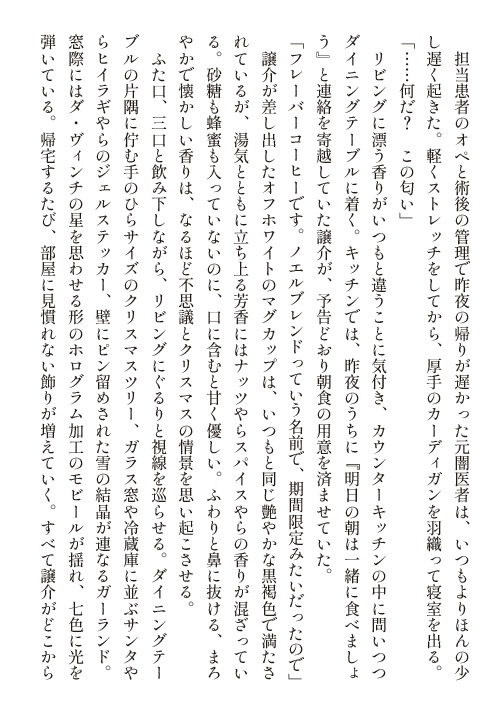 担当患者のオペと術後の管理で昨夜の帰りが遅かった元闇医者は、いつもよりほんの少
し遅く起きた。軽くストレッチをしてから、厚手のカーディガンを羽織って寝室を出る。
「……何だ？　この匂い」
　リビングに漂う香りがいつもと違うことに気付き、カウンターキッチンの中に問いつつ
ダイニングテーブルに着く。キッチンでは、昨夜のうちに『明日の朝は一緒に食べましょ
う』と連絡を寄越していた譲介が、予告どおり朝食の用意を済ませていた。
「フレーバーコーヒーです。ノエルブレンドっていう名前で、期間限定みたいだったので」
　譲介が差し出したオフホワイトのマグカップは、いつもと同じ艶やかな黒褐色で満たさ
れているが、湯気とともに立ち上る芳香にはナッツやらスパイスやらの香りが混ざってい
る。砂糖も蜂蜜も入っていないのに、口に含むと甘く優しい。ふわりと鼻に抜ける、まろ
やかで懐かしい香りは、なるほど不思議とクリスマスの情景を思い起こさせる。
　ふた口、三口と飲み下しながら、リビングにぐるりと視線を巡らせる。ダイニングテー
ブルの片隅に佇む手のひらサイズのクリスマスツリー、ガラス窓や冷蔵庫に並ぶサンタや
らヒイラギやらのジェルステッカー、壁にピン留めされた雪の結晶が連なるガーランド。
窓際にはダ・ヴィンチの星を思わせる形のホログラム加工のモビールが揺れ、七色に光を
弾いている。帰宅するたび、部屋に見慣れない飾りが増えていく。すべて譲介がどこから